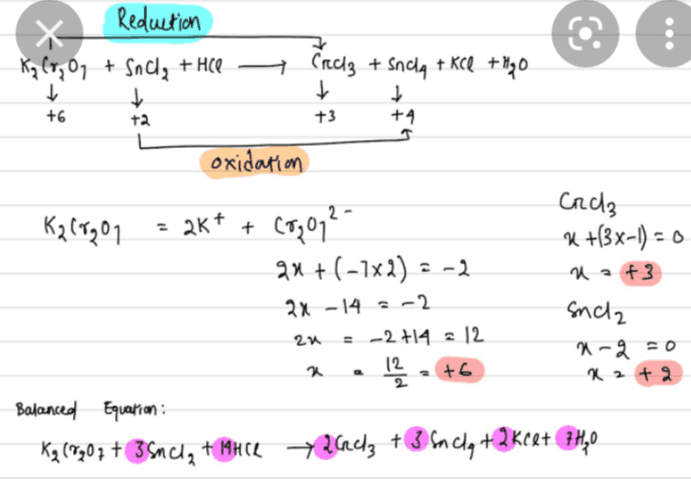 Reduction
K₂Cr₂O₇ + SnCl₂ + HCl ⟶ CrCl₃ + SnCl₄ + KCl + H₂O
↓ ↓ ↓ ↓
+6 +2 +3 +4
oxidation
K₂Cr₂O₇ = 2K⁺ + Cr₂O₇²⁻
2x + (-7x2) = -2
2x - 14 = -2
2x = -2+14 = 12
x = 12/2 = +6
CrCl₃
x + (3x-1) = 0
x = +3
SnCl₂
x - 2 = 0
x = +2
Balanced Equation:
K₂Cr₂O₇ + 3SnCl₂ + 14HCl → 2CrCl₃ + 3SnCl₄ + 2KCl + 7H₂O